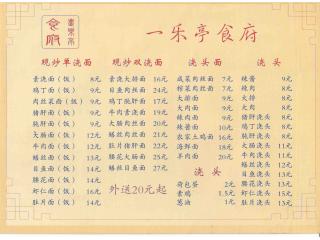 食府
一乐亭食府
现炒单浇面
素浇面（饭） 8元
鸡丁面（饭） 9元
肉丝菜面（饭） 9元
猪肝面（饭） 9元
肫肝面（饭）
大肠面（饭） 12元
牛肉面（饭） 12元
鳝丝面（饭） 12元
目鱼面（饭） 14元
腰花面（饭） 14元
虾仁面（饭） 16元
肚片面（饭） 14元
现炒双浇面
素浇大排面 16元
目鱼肉丝面 24元
鸡丁肫肝面 17元
牛肉猪肝面
大肠肉丝面
鳝丝肉丝面
肚片猪肝面
腰花大肠面 25元
鳝丝目鱼面 27元
外送20元起
浇头面
咸菜肉丝面 7元
榨菜肉丝面 7元
大排面 9元
大肉面 9元
辣肉面
辣酱面 10元
农家土鸡面 16元
海鲜面 18元
羊肉面 20元
浇头
荷包蛋 2元
素鸡 1.5元
葱油 1元
浇头
辣酱 9元
辣肉 9元
大排 9元
大肉 9元
猪肝浇头 13元
鸡丁浇头 13元
肫肝浇头
大肠浇头
牛肉浇头
鳝丝浇头
目鱼浇头
腰花浇头 13元
虾仁浇头
肚片浇头